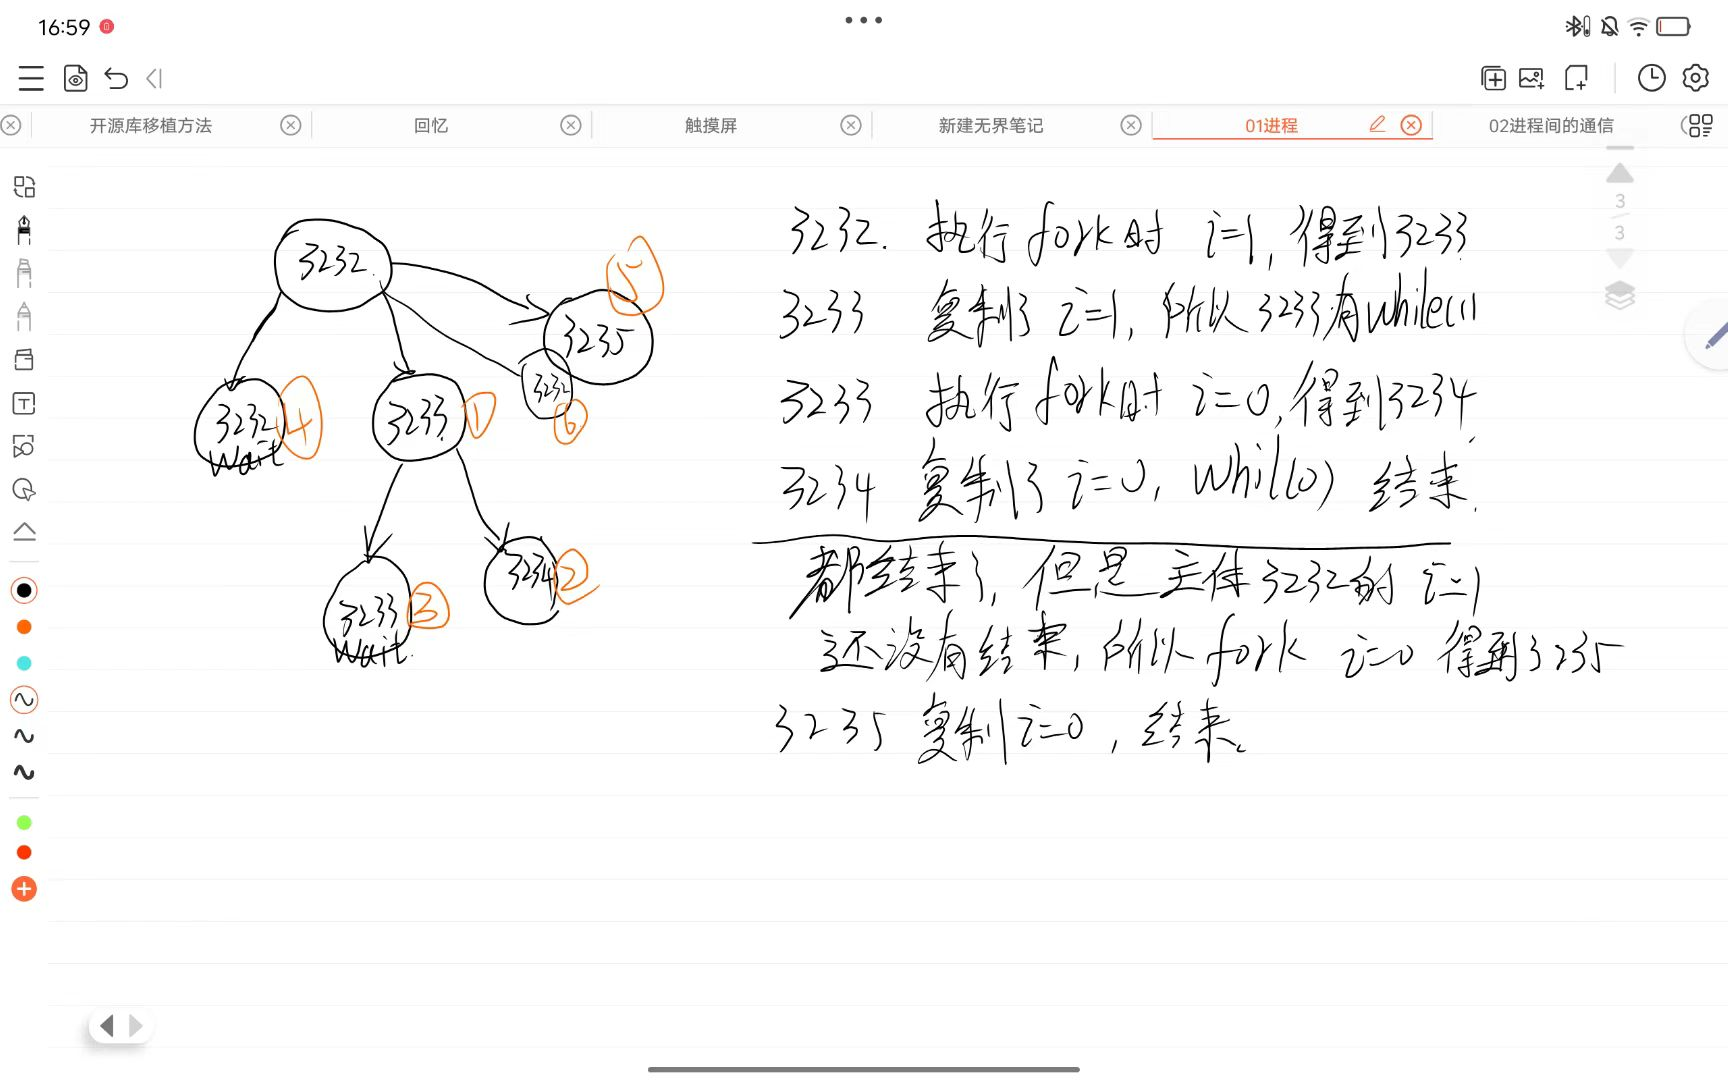 16:59
开源库移植方法
回忆
触摸屏
新建无界笔记
01进程
02进程间的通信
3
3
3232
5
3235
3232
6
3232
wait
4
3233
1
3233
wait
3
3234
2
3232. 执行fork时 i=1, 得到3233
3233 复制了 i=1, 所以3233有while(1)
3233 执行fork时 i=0, 得到3234
3234 复制了 i=0, whil(0) 结束.
都结束了, 但是 主体3232的 i=1
还没有结束, 所以 fork i=0 得到3235
3235 复制i=0, 结束。